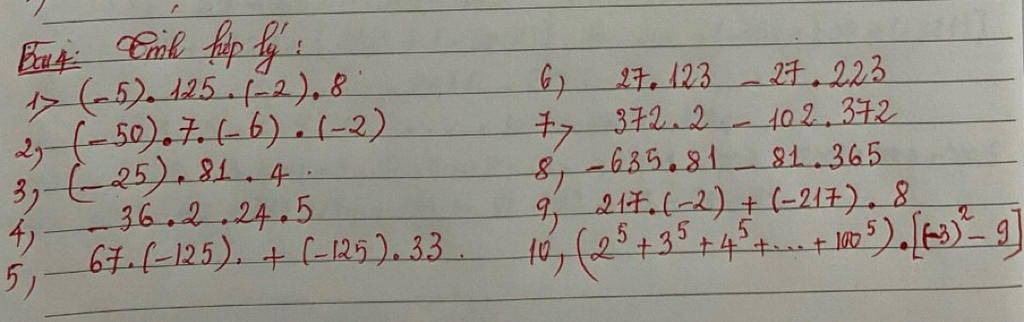 Bài 4: Tính hợp lý:
1> (-5). 125 . (-2). 8
2, (-50). 7. (-6) . (-2)
3, (-25) . 81 . 4 .
4, - 36 . 2 . 24 . 5
5, 67. (-125). + (-125). 33 .
6, 27. 123 - 27 . 223
7, 372 . 2 - 102 . 372
8, -635 . 81 - 81 . 365
9, 217. (-2) + (-217) . 8
10, (2⁵ + 3⁵ + 4⁵ + ... + 100⁵) . [(-3)² - 9]